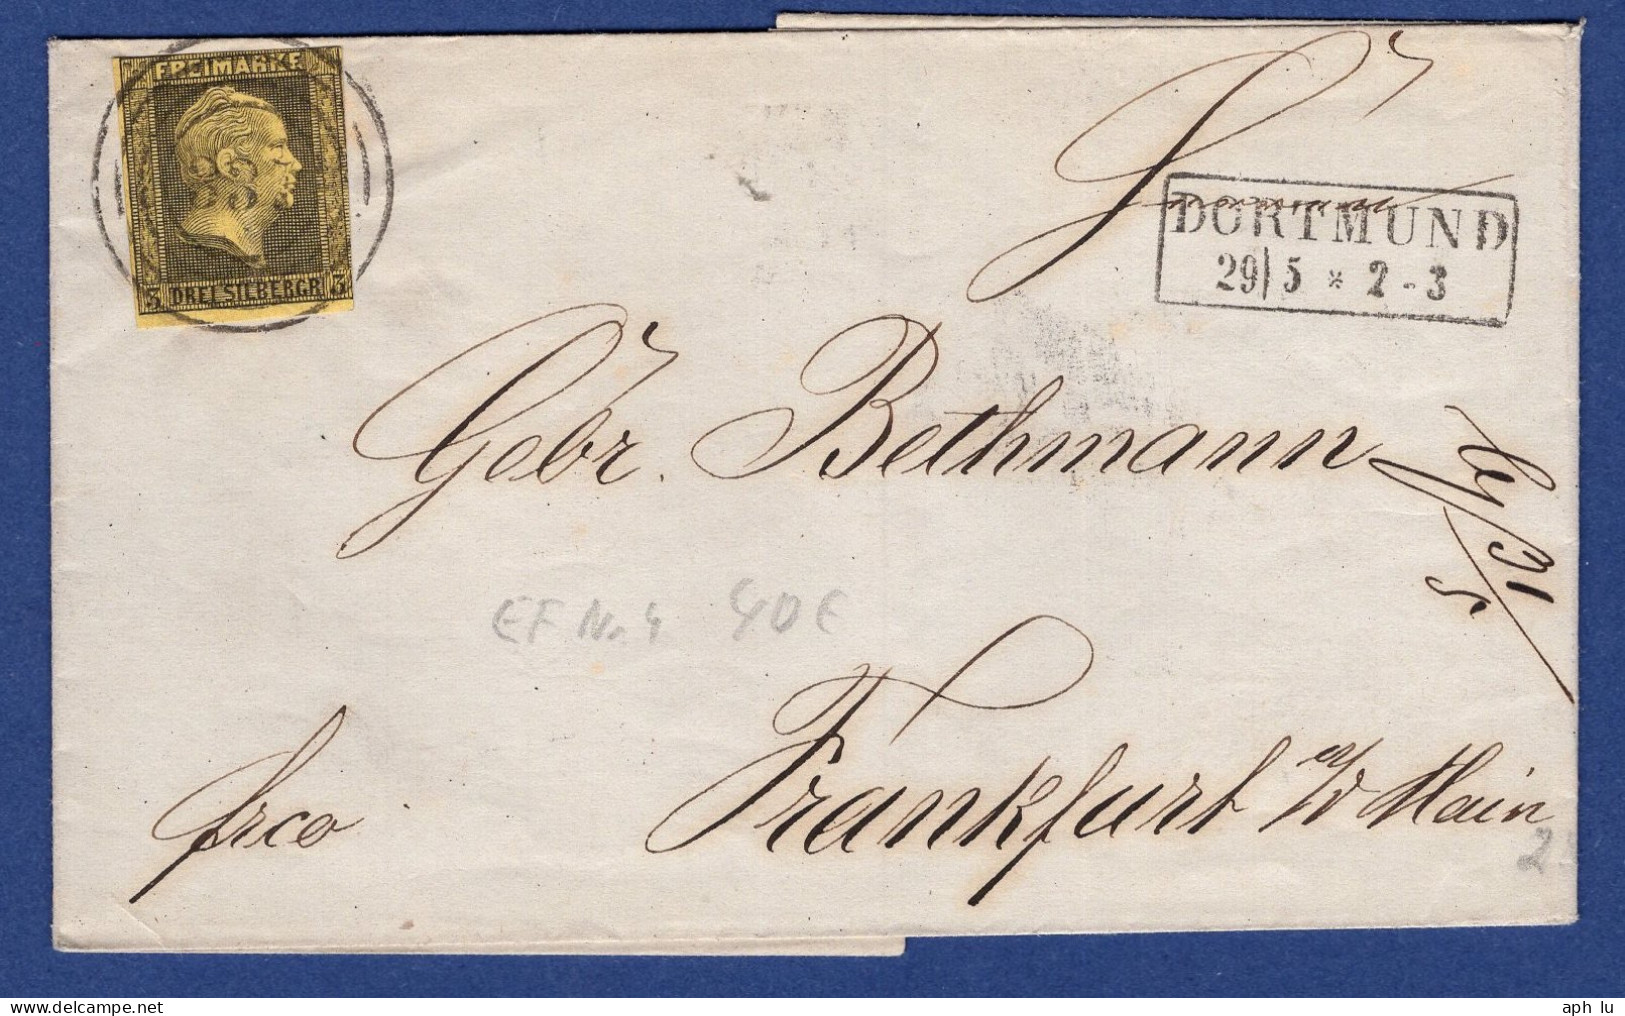 FREIMARKE
3 DREI SILBERGR. 3
DORTMUND
29/5 * 2-3
Gebr. Bethmann
31/5
EF Nr. 4 40 €
frco
Frankfurt a/d Main
2
aph lu